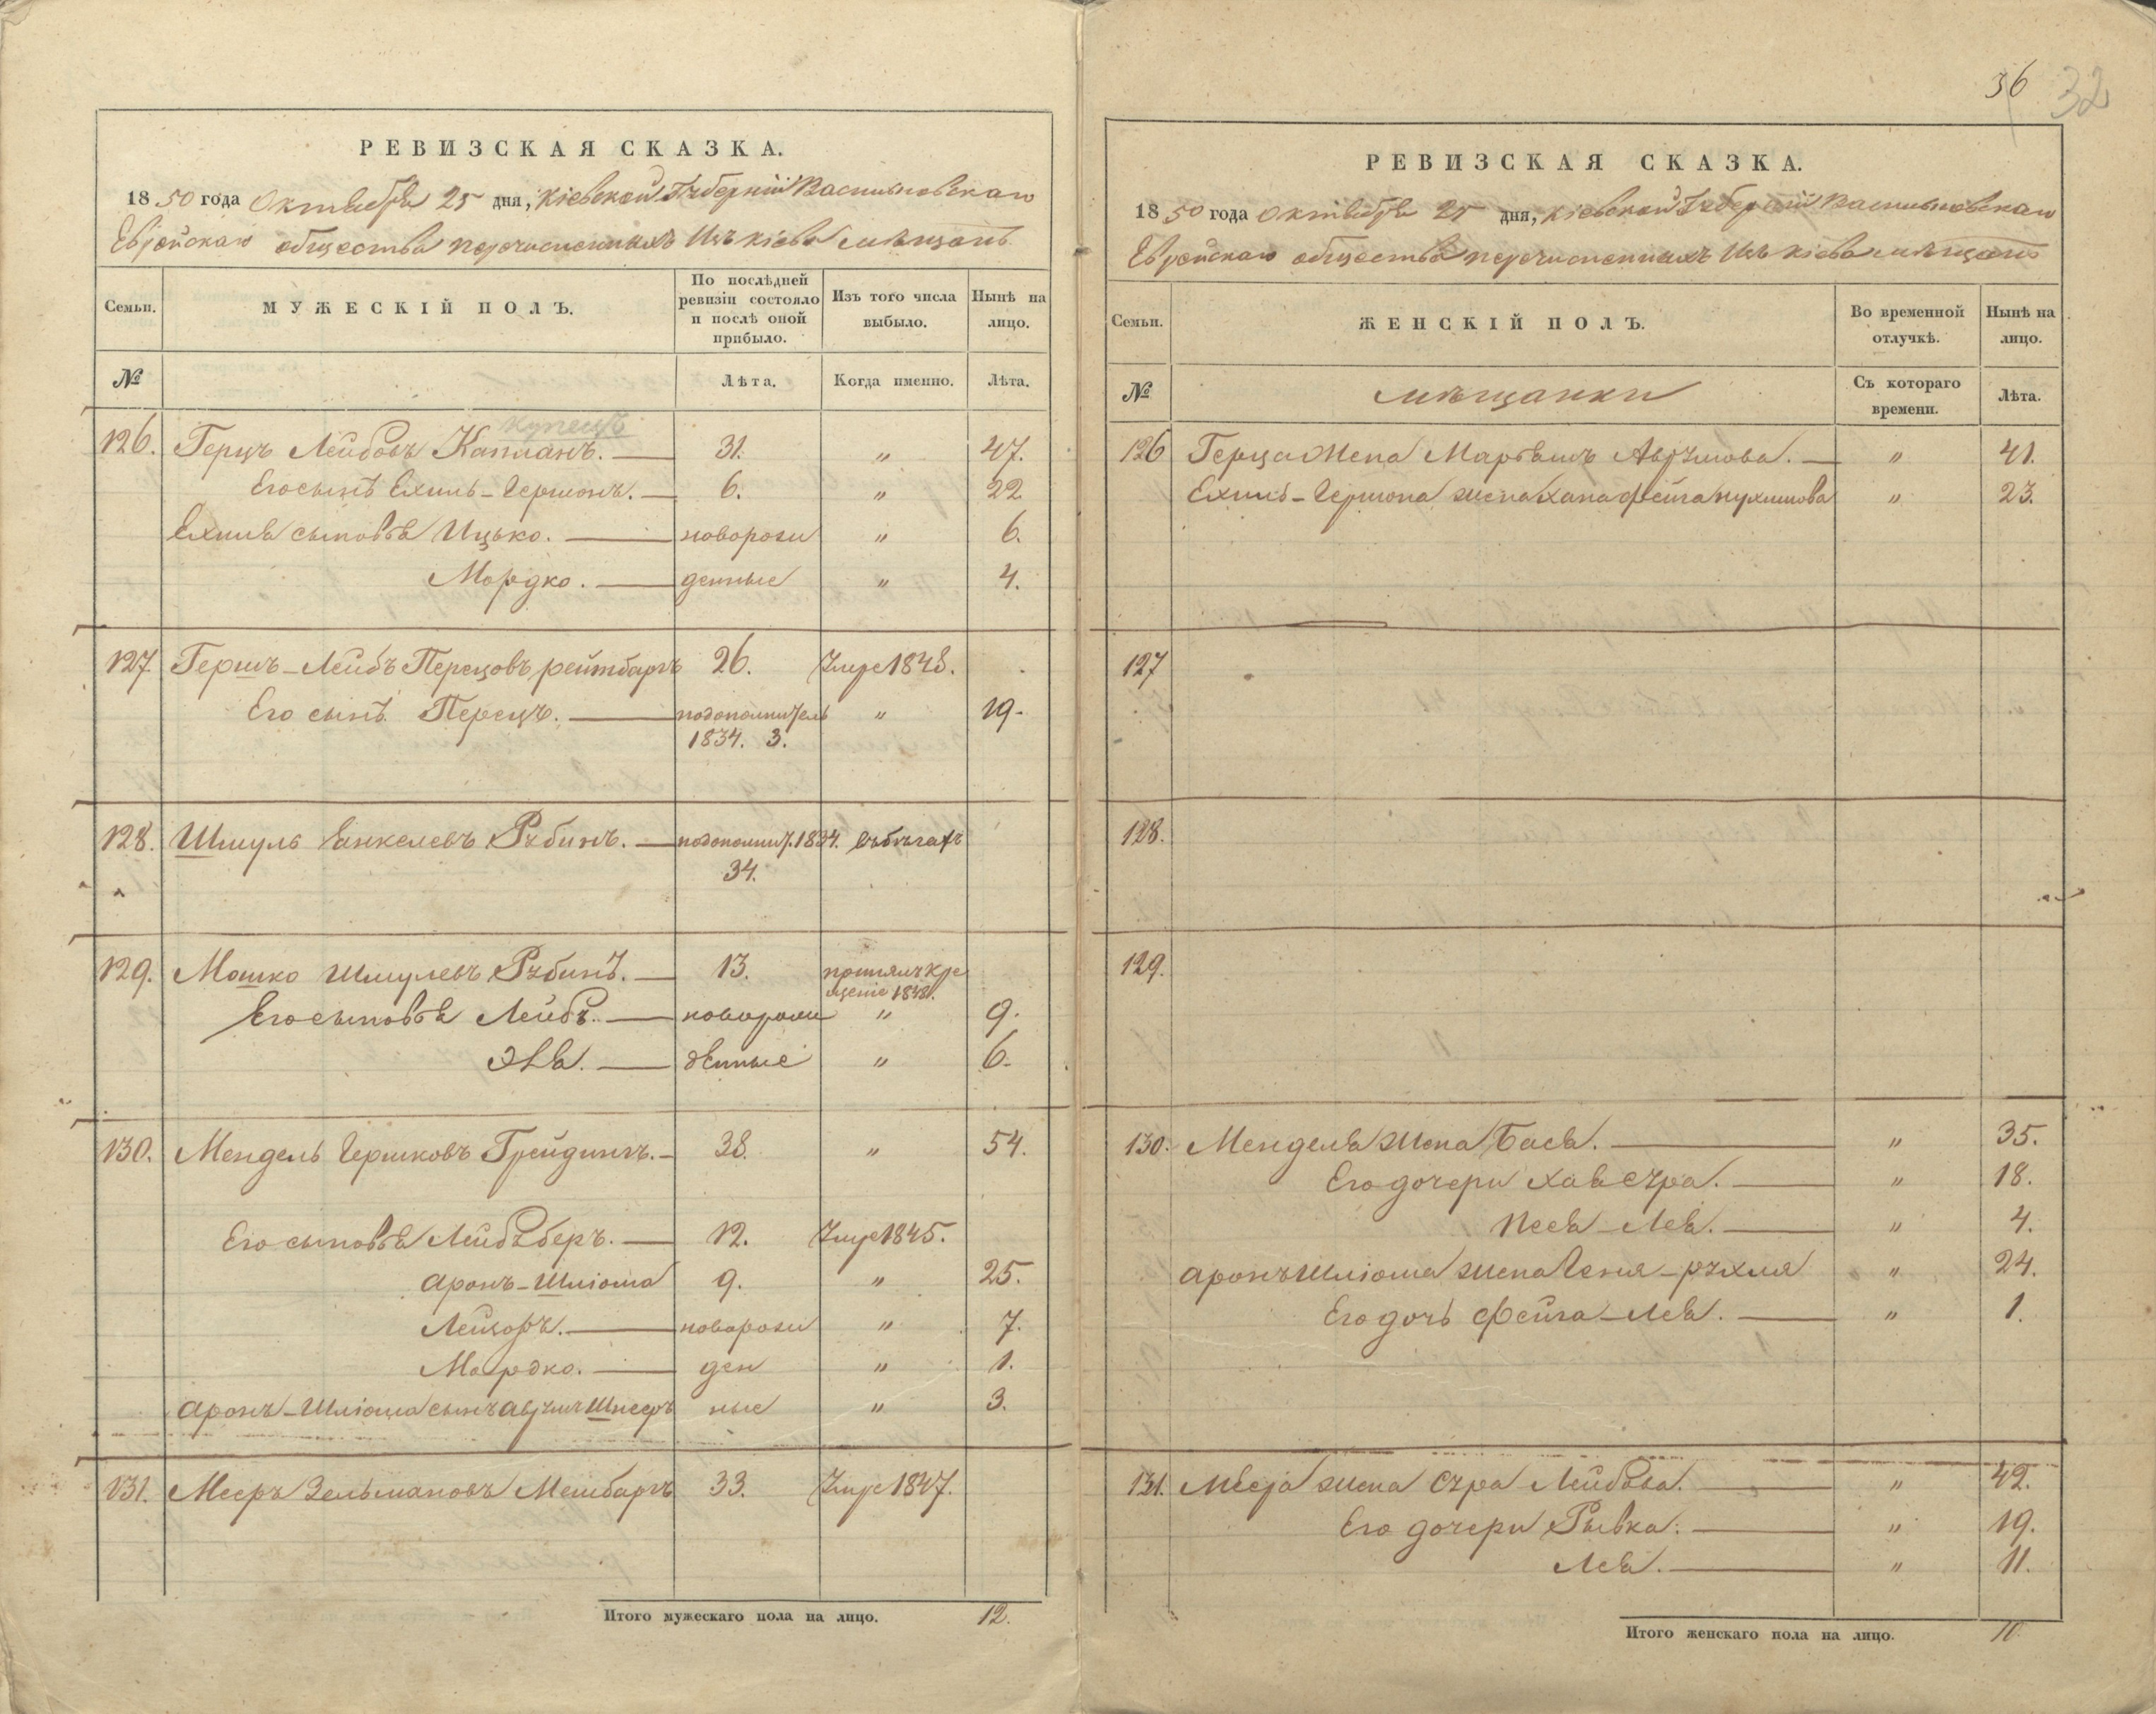 РЕВИЗСКАЯ СКАЗКА.
1850 года Октября 25 дня, Кіевской Губерніи Васильковскаго
Еврейскаго общества перечисленныхъ Изъ Кіева мѣщанъ
Семьи.
МУЖЕСКІЙ ПОЛЪ.
По послѣдней ревизіи состояло и послѣ оной прибыло.
Изъ того числа выбыло.
Нынѣ на лицо.
№
Лѣта.
Когда именно.
Лѣта.
купецъ
126. Герцъ Лейбовъ Капланъ. 31. " 47.
Его сынъ Ехиль-Гершонъ. 6. " 22
Ехиля сыновья Ицько. новорож " 6.
Мордко. денные " 4.
127. Гершъ-Лейбъ Перецовъ рейтбаргъ 26. Умре 1848.
Его сынъ Перецъ. подополнител " 19.
1834. 3.
128. Шмуль Янкелевъ Рубинъ. подополнит. 1834. въ бѣгахъ
34.
129. Мошко Шмулевъ Рубинъ. 13. принялъ кре
щеніе 1848.
Его сыновья Лейбъ. новорож " 9.
Эля. денные " 6.
130. Мендель Гершковъ Грейдингъ. 38. " 54.
Его сыновья Лейбъ беръ. 12. Умре 1845.
Аронъ-Шліома 9. " 25.
Лейзоръ. новорож " 7.
Мордко. ден " 1.
Аронъ-Шліома сынъ Аврумъ Шнееръ ные " 3.
131. Мееръ Зельмановъ Мешбаргъ 33. Умре 1847.
Итого мужескаго пола на лицо. 12.
36 32
РЕВИЗСКАЯ СКАЗКА.
1850 года Октября 25 дня, Кіевской Губерніи Васильковскаго
Еврейскаго общества перечисленныхъ Изъ Кіева мѣщанъ
Семьи.
ЖЕНСКІЙ ПОЛЪ.
Во временной отлучкѣ.
Нынѣ на лицо.
№
мѣщанки
Съ котораго времени.
Лѣта.
126 Герца Жена Марьямъ Аврумова. " 41.
Ехиль-Гершона жена Хана фейга Нухимова " 23.
127
128.
129.
130. Менделя жена Бася. " 35.
Его дочери Хая Сура. " 18.
Песя-Лея. " 4.
Аронъ Шліома жена Геня-рухля " 24.
Его дочь Фейга-Лея. " 1.
131. Меера жена Сура Лейбова. " 42.
Его дочери Рывка. " 19.
Лея. " 11.
Итого женскаго пола на лицо. 10